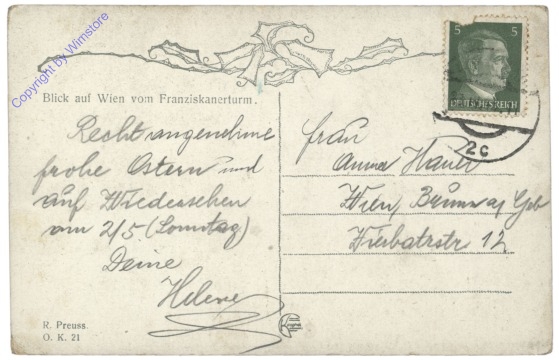 Copyright by Wimstore
5 5
DEUTSCHES REICH
2c
Blick auf Wien vom Franziskanerturm.
Recht angenehme
frohe Ostern und
auf Wiedersehen
am 2/5 (Sonntag)
Deine
Helene
Frau
Anna Hauer
Wien, Brunn a/ Geb
12
R. Preuss.
O. K. 21